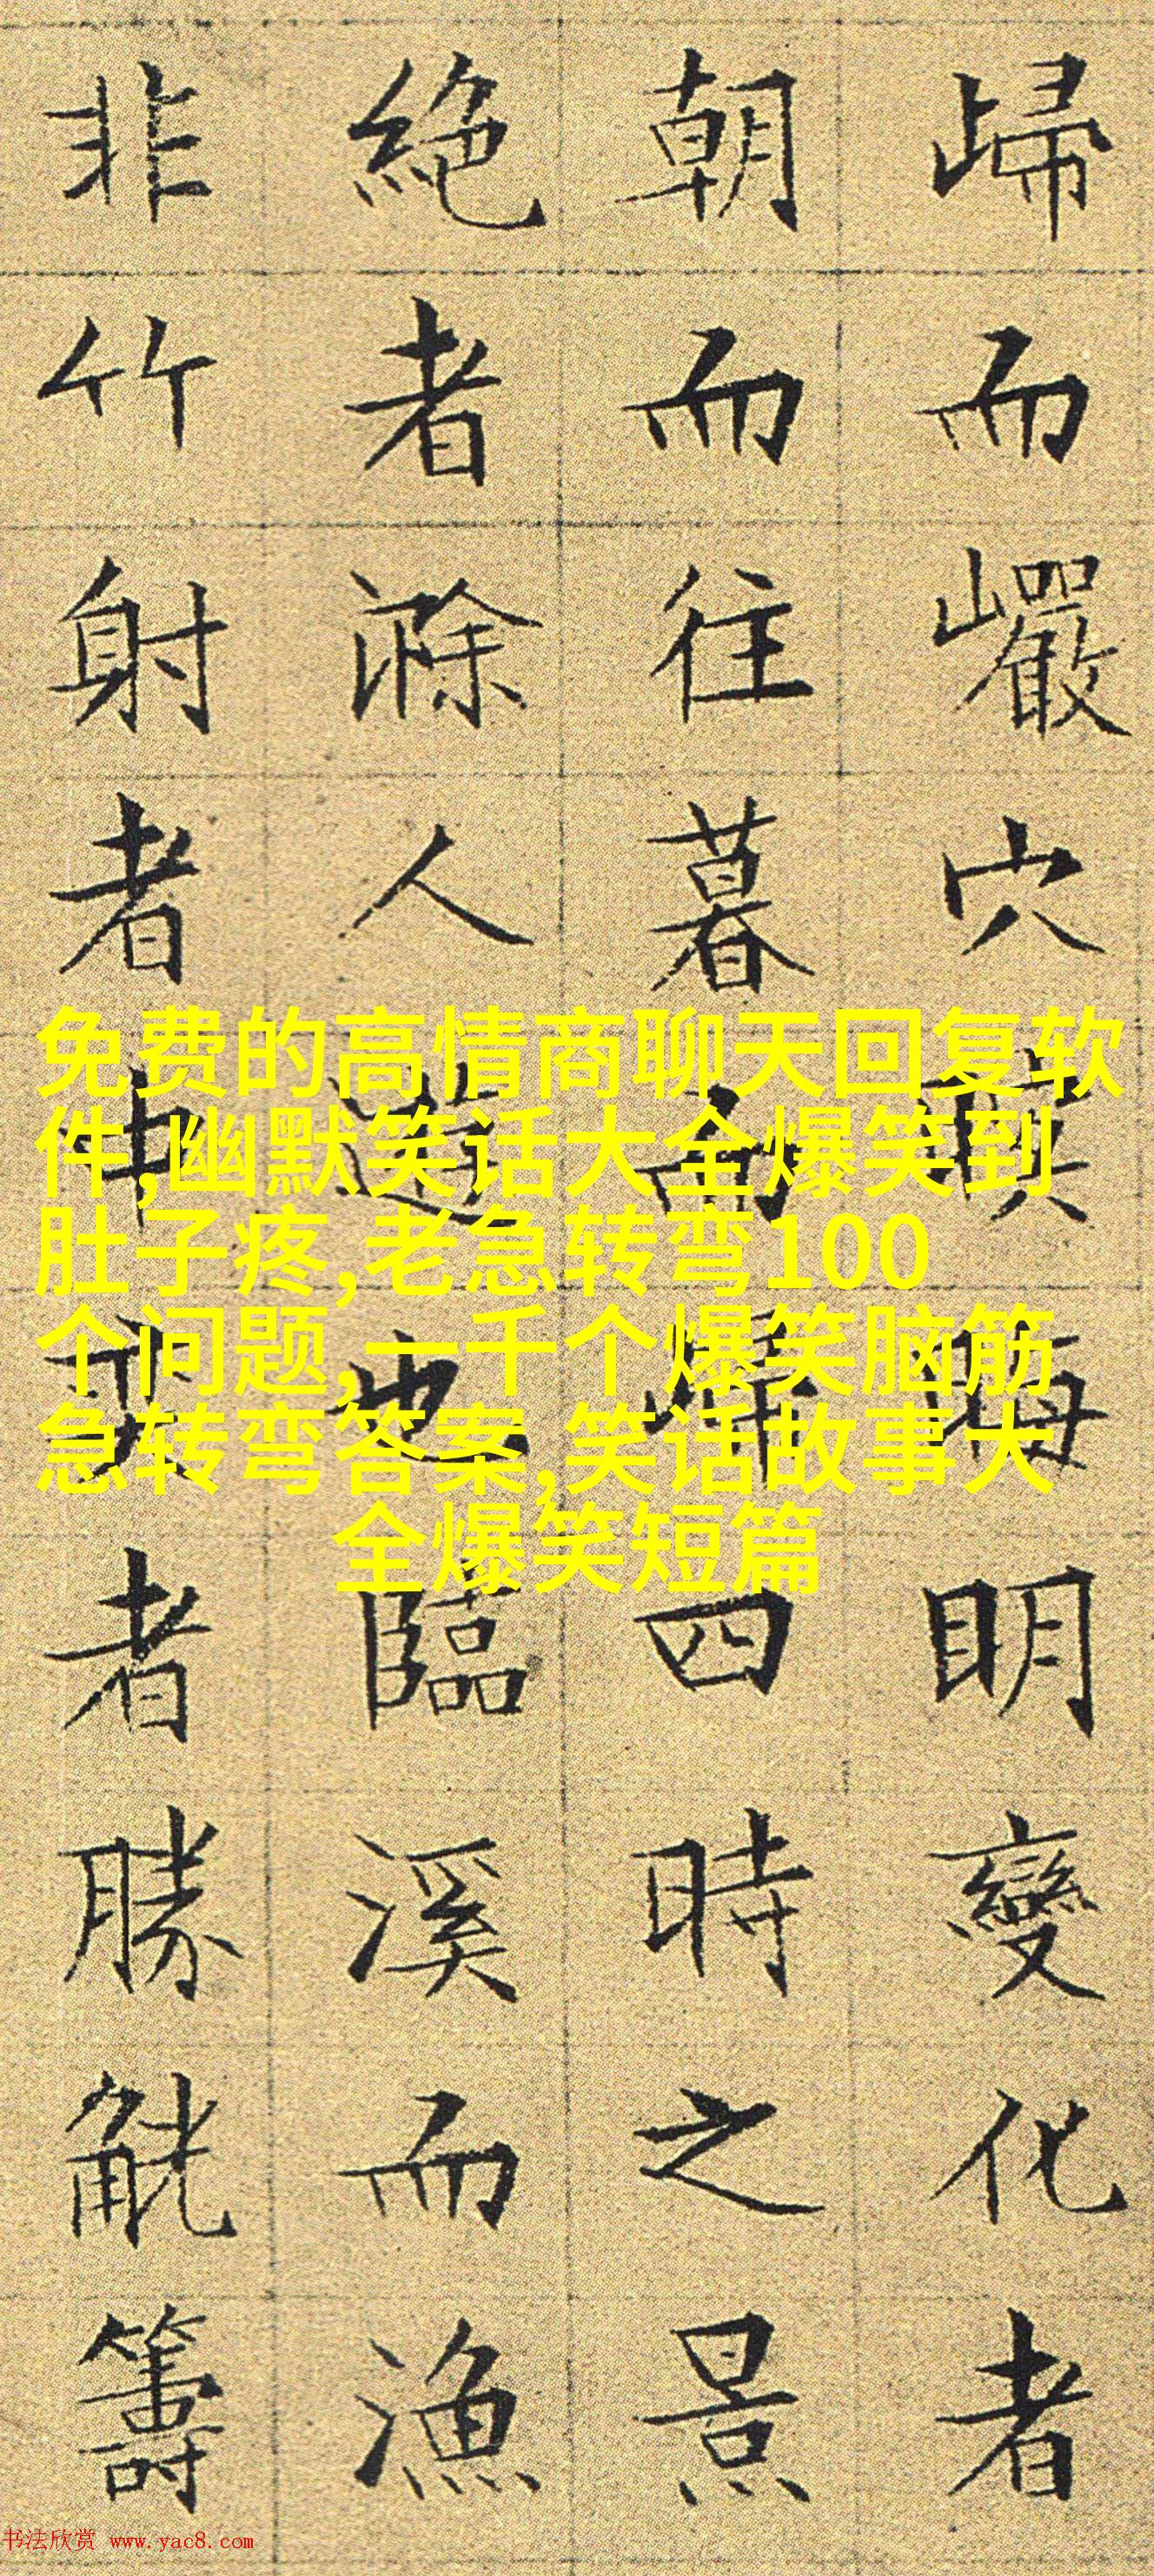 歸而巖穴暝晦明變化者
朝而往暮而歸四時之景
絕者滁人遊也臨溪而漁
非竹射者中者勝觥籌
免费的高情商聊天回复软
件,幽默笑话大全爆笑到
肚子疼,老急转弯100
个问题,一千个爆笑脑筋
急转弯答案,笑话故事大
全爆笑短篇
书法欣赏 www.yac8.com